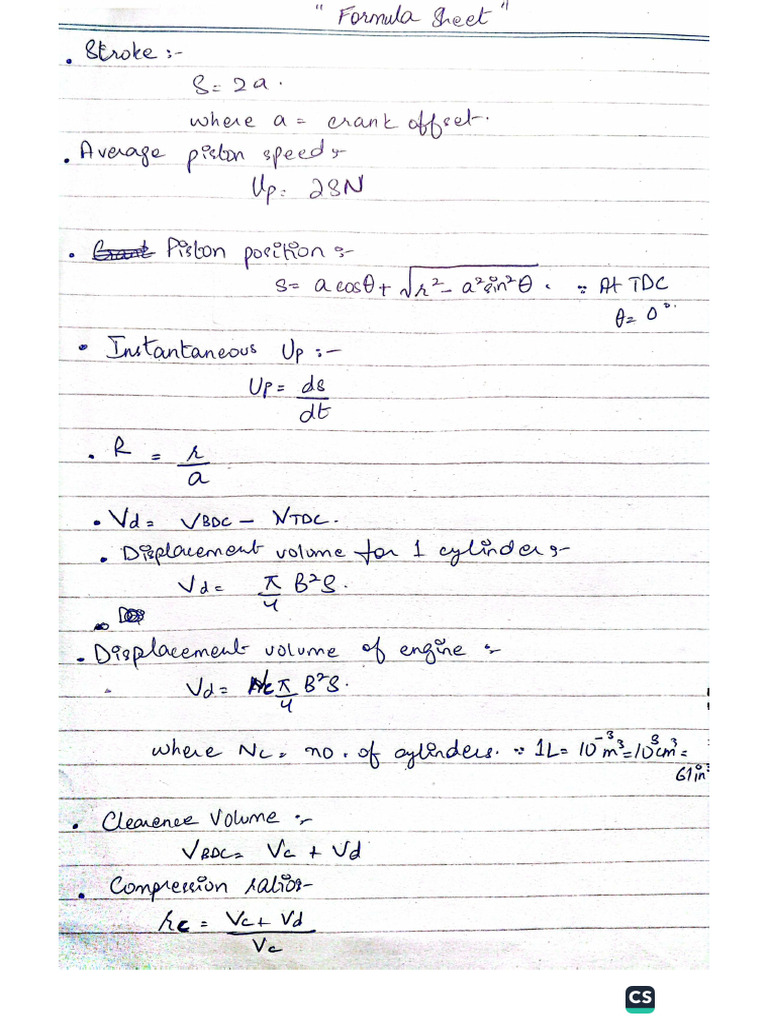 " Formula Sheet "
• Stroke :-
S = 2a.
where a = crank offset.
• Average piston speed :-
Up = 2SN
• Piston position :-
s = a cosθ + √r² - a² sin²θ . ∵ At TDC
θ = 0°.
• Instantaneous Up :-
Up = ds
dt
• R = r
a
• Vd = VBDC - VTDC.
• Displacement volume for 1 cylinder :-
Vd = π B²S.
4
• Displacement volume of engine :-
Vd = Nc π B²S.
4
where Nc = no. of cylinders. ∵ 1L = 10⁻³ m³ = 10³ cm³ =
61 in³
• Clearence Volume :-
VBDC = Vc + Vd
• Compression ratio :-
rc = Vc + Vd
Vc
CS